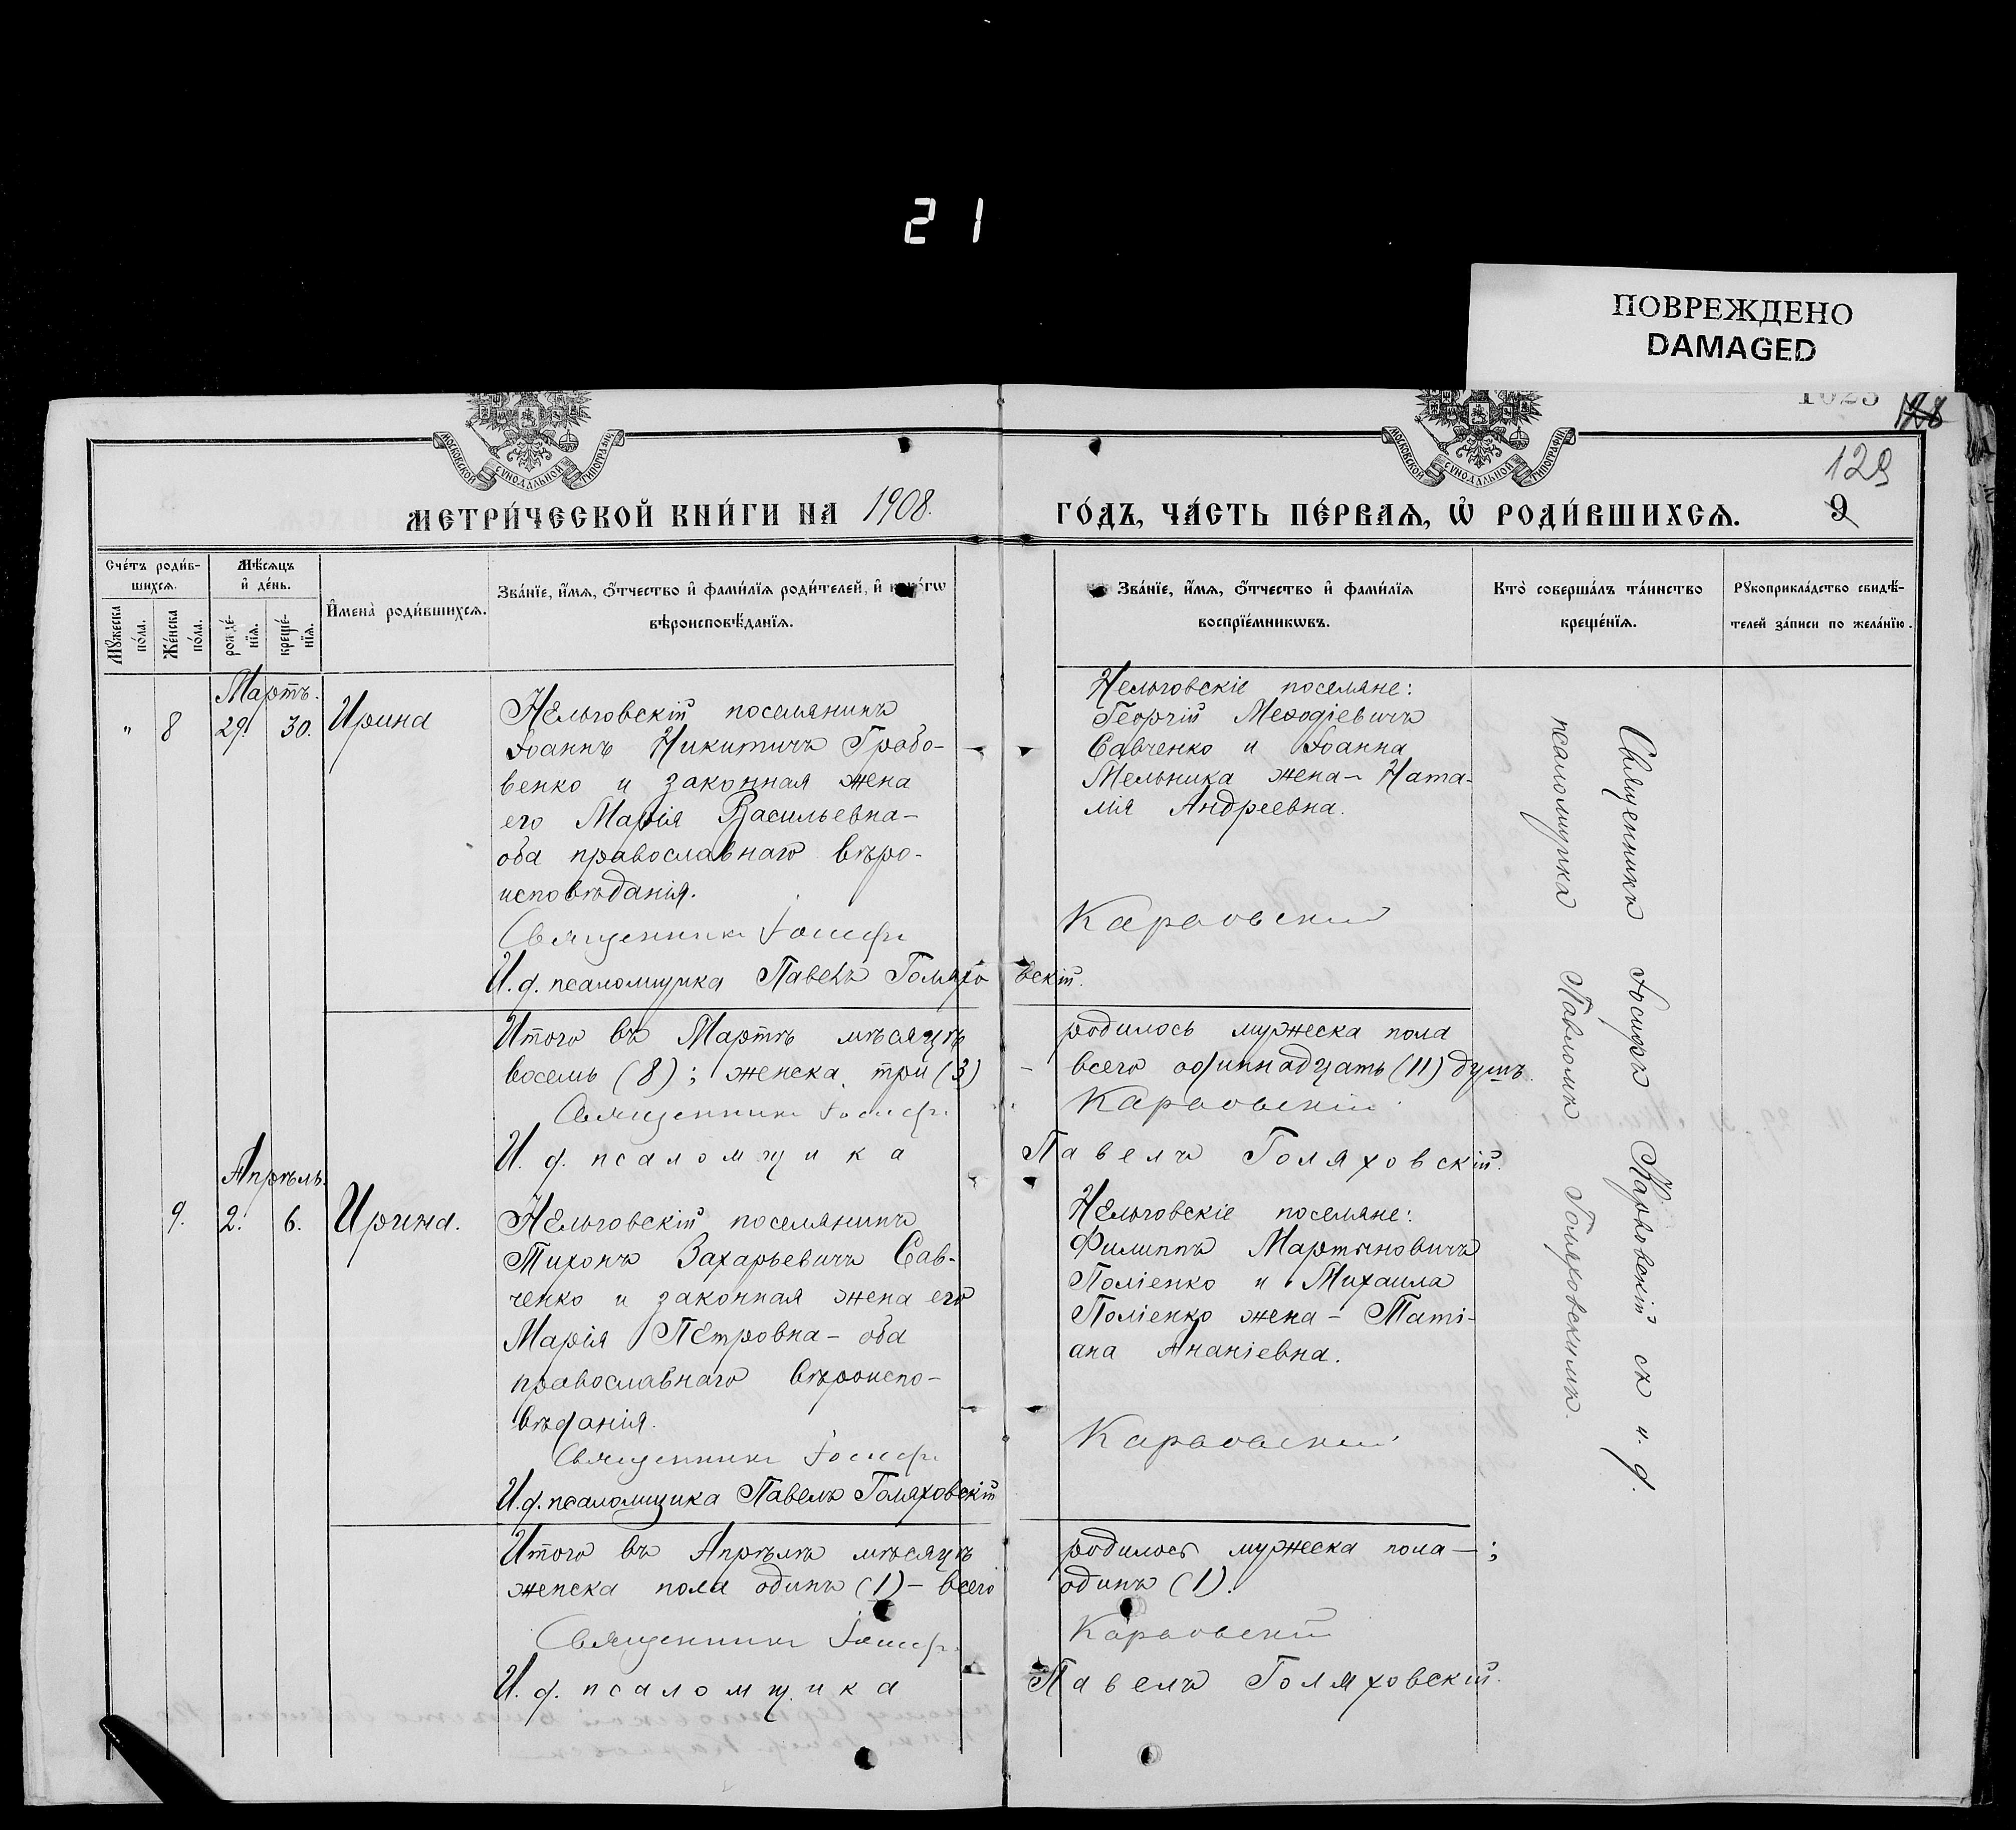 21
ПОВРЕЖДЕНО
DAMAGED
1023
128
129
МОСКОВСКОЙ СѴНОДАЛЬНОЙ ТИПОГРАФІИ
МОСКОВСКОЙ СѴНОДАЛЬНОЙ ТИПОГРАФІИ
МЕТРИ́ЧЕСКОЙ КНИ́ГИ НА 1908. ГО́ДЪ, ЧА́СТЬ ПЕ́РВАѦ, Ѡ҆ РОДИ́ВШИХСѦ. 9
Сче́тъ роди́в-
шихсѧ.
Мꙋ́жеска
по́ла.
Же́нска
по́ла.
Мѣ́сѧцъ
и҆ де́нь.
рожде́-
нїѧ.
креще́-
нїѧ.
И҆мена̀ роди́вшихсѧ.
Зва́нїе, и҆́мѧ, ѻ҆́тчество и҆ фами́лїѧ роди́телей, и҆ како́гѡ
вѣроисповѣ́данїѧ.
Зва́нїе, и҆́мѧ, ѻ҆́тчество и҆ фами́лїѧ
воспрїе́мникѡвъ.
Кто̀ соверша́лъ та́инство
креще́нїѧ.
Рꙋкоприкла́дство свидѣ́-
телей за́писи по жела́нїю.
Мартъ.
" 8 29. 30. Ирина
Нельговскій поселянинъ
Іоаннъ Никитичъ Грабо-
венко и законная жена
его Марія Васильевна -
оба православнаго вѣро-
исповѣданія.
Священникъ Іосифъ
И. д. псаломщика Павелъ Голяхо
Нельговскіе поселяне:
Георгій Меѳодіевичъ
Савченко и Іоанна
Мельника жена - Ната-
лія Андреевна.
Карповскій
вскій.
Итого въ Мартѣ мѣсяцѣ
восемь (8); женска три (3)
Священникъ Іосифъ
И. д. псаломщика
родилось мужеска пола
- всего одиннадцать (11) душъ.
Карповскій
Павелъ Голяховскій.
Апрѣль.
9. 2. 6. Ирина.
Нельговскій поселянинъ
Тихонъ Захарьевичъ Сав-
ченко и законная жена его
Марія Петровна - оба
православнаго вѣроиспо-
вѣданія.
Священникъ Іосифъ
И. д. псаломщика Павелъ Голяховскій
Нельговскіе поселяне:
Филиппъ Мартыновичъ
Поліенко и Михаила
Поліенко жена - Таті-
ана Ананіевна.
Карповскій
Итого въ Апрѣлѣ мѣсяцѣ
женска пола одинъ (1) - всего
Священникъ Іосифъ
И. д. псаломщика
родилось мужеска пола - ;
одинъ (1).
Карповскій
Павелъ Голяховскій.
Священникъ Іосифъ Карповскій съ и. д.
псаломщика Павломъ Голяховскимъ.